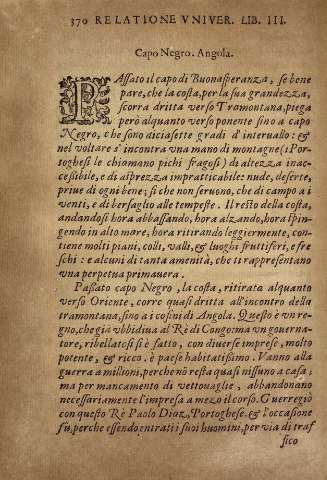 370 RELATIONE VNIVER. LIB. III.
Capo Negro. Angola.
PAſſato il capo di Buonaſperanza, ſe bene
pare, che la coſta, per la ſua grandezza,
ſcorra dritta verſo Tramontana, piega
però alquanto verſo ponente ſino a capo
Negro, che ſono diciaſette gradi d'interuallo: &
nel voltare s'incontra vna mano di montagne (i Por-
togheſi le chiomano pichi fragoſi) di altezza inac-
ceſsibile, e di aſprezza impratticabile: nude, deſerte,
priue di ogni bene; ſi che non ſeruono, che di campo a i
venti, e di berſaglio alle tempeſte. Il reſto della coſta,
andandoſi hora abbaſſando, hora alzando, hora ſpin-
gendo in alto mare, hora ritirando leggiermente, con-
tiene molti piani, colli, valli, & luoghi fruttiferi, e fre
ſchi: e alcuni di tanta amenità, che ti rappreſentano
vna perpetua primauera.
Paſſato capo Negro, la coſta, ritirata alquanto
verſo Oriente, corre quaſi dritta all'incontro della
tramontana, ſino a i cōfini di Angola. Queſto è vn re-
gno, che già vbbidiua al Rè di Congo: ma vn gouerna-
tore, ribellatoſi ſi è fatto, con diuerſe impreſe, molto
potente, & ricco. è paeſe habitatiſsimo. Vanno alla
guerra a millioni, perche nō reſta quaſi niſſuno a caſa;
ma per mancamento di vettouaglie, abbandonano
neceſſariamente l'impreſa a mezo il corſo. Guerregiò
con queſto Rè Paolo Diaz, Portogheſe. & l'occaſione
fù, perche eſſendo entrati i ſuoi huomini, per via di traf
fico